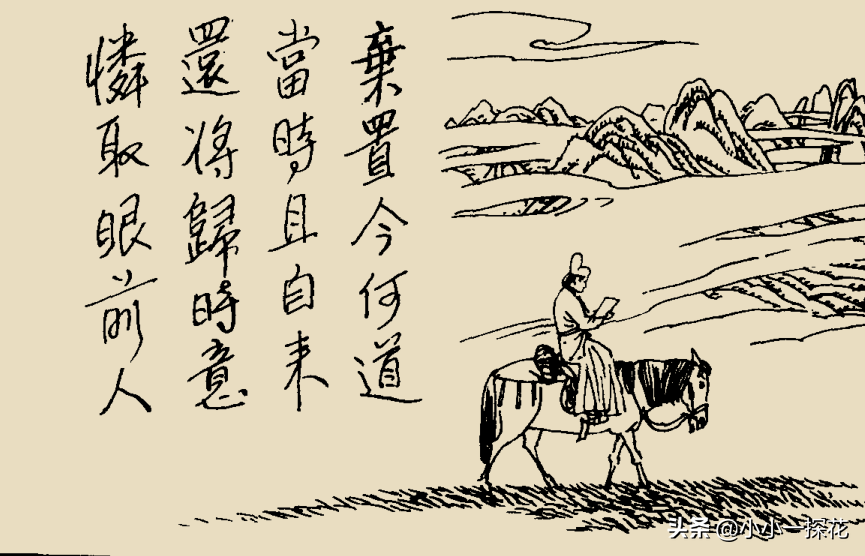 棄置今何道
當時且自来
還将歸時意
憐取眼前人
头条 @小小一探花